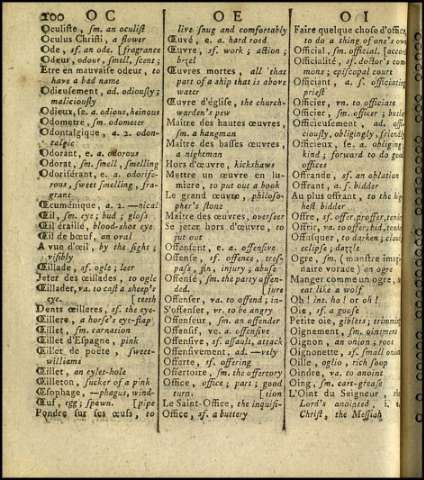 200 O C
Oculiste, sm. an oculist
Oculus Christi, a flower
Ode, sf. an ode. [fragrance
Odeur, odour, smell, scent;
Etre en mauvaise odeur, to
have a bad name
Odieusement, ad. odiously;
maliciously
Odieux, se. a. odious, heinous
Odometre, sm. odometer
Odontalgique, a. 2. odon-
talgic
Odorant, e. a. odorous
Odorat, sm. smell, smelling
Odoriférant, e. a. odorife-
rous, sweet smelling, fra-
grant.
Œcuménique, a. 2. —nical
Œil, sm. eye; bud; gloss
Œil éraille, blood-shot eye
Œil de bœuf, an oval
A vue d'œil, by the sight;
visibly
Œillade, sf. ogle; leer
Jeter des œillades, to ogle
Œillader, va. to cast a sheep's
eye. [teeth
Dents œilleres, sf. the eye-
Œillere, a horse's eye-flap
Œillet, sm. carnation
Œillet d'Espagne, pink
Œillet de poëte, sweet-
williams
Œillet, an eylet-hole
Œilleton, sucker of a pink
Œsophage, —phagus, wind-
Œuf, egg; spawn. [pipe
Pondre sur ses œufs, to
O E
live snug and comfortably
Œuvé, e. a. hard roed
Œuvre, sf. work; action;
bezel
Œuvres mortes, all that
part of a ship that is above
water
Œuvre d'église, the church-
warden's pew
Maître des hautes œuvres,
sm. a hangman
Maître des basses œuvres,
a nightman
Hors d'œuvre, kickshaws
Mettre un œuvre en lu-
miere, to put out a book
Le grand œuvre, philoso-
pher's stone
Maître des œuvres, overseer
Se jeter hors d'œuvre, to
jut out
Offensant, e. a. offensive
Offense, sf. offence, tres-
pass, sin, injury; abuse
Offensé, sm. the party offen-
ded. [jure
Offenser, va. to offend; in-
S'offenser, vr. to be angry
Offenseur, sm. an offender
Offensif, ve. a. offensive
Offensive, sf. assault, attack
Offensivement, ad. —vely
Offerte, sf. offering
Offertoire, sm. the offertory
Office, office; part; good
turn. [tion
Le Saint-Office, the inquisi-
Office, sf. a buttery
O I
Faire quelque chose d'office,
to do a thing of one's own
Official, sm. official.
Officialité, sf. doctor's com-
mons; episcopal court
Officiant, a. f. officiating
priest
Officier, vn. to officiate
Officier, sm. officer;
Officieusement, ad. offi-
ciously, obligingly,
Officieux, se a. obliging,
kind; forward to do good
offices
Offrande, sf. an oblation
Offrant, a. s. bidder
Au plus offrant, to the high-
hest bidder
Offre, sf. offer, proffer,
Offrir, va. to offer; bid,
Offusquer, to darken;
eclipse; dazzle
Ogre, sm. (monstre imagi-
naire vorace) an ogre
Manger comme un ogre,
eat like a wolf
Oh! int. ho! or oh!
Oie, sf. a goose
Petite oie, giblets; trimming
Oignement, sm. ointment
Oignon, an onion; root
Oignonette, sf. small onion
Oille, oglio, rich soup
Oindre, va. to anoint
Oing, sm. cart-grease
L'Oint du Seigneur, the
Lord's anointed,
Christ, the Messiah